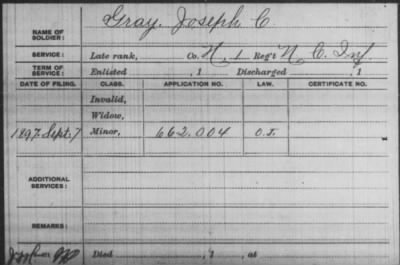 NAME OF SOLDIER: Gray, Joseph C.
SERVICE: Late rank, Co. H, 1 Reg't N. C. Inf.
TERM OF SERVICE: Enlisted , 1 Discharged , 1
DATE OF FILING. CLASS. APPLICATION NO. LAW. CERTIFICATE NO.
Invalid,
Widow,
1897 Sept. 7 Minor, 662.004 O.J.
ADDITIONAL SERVICES:
REMARKS:
Died , 1 , at